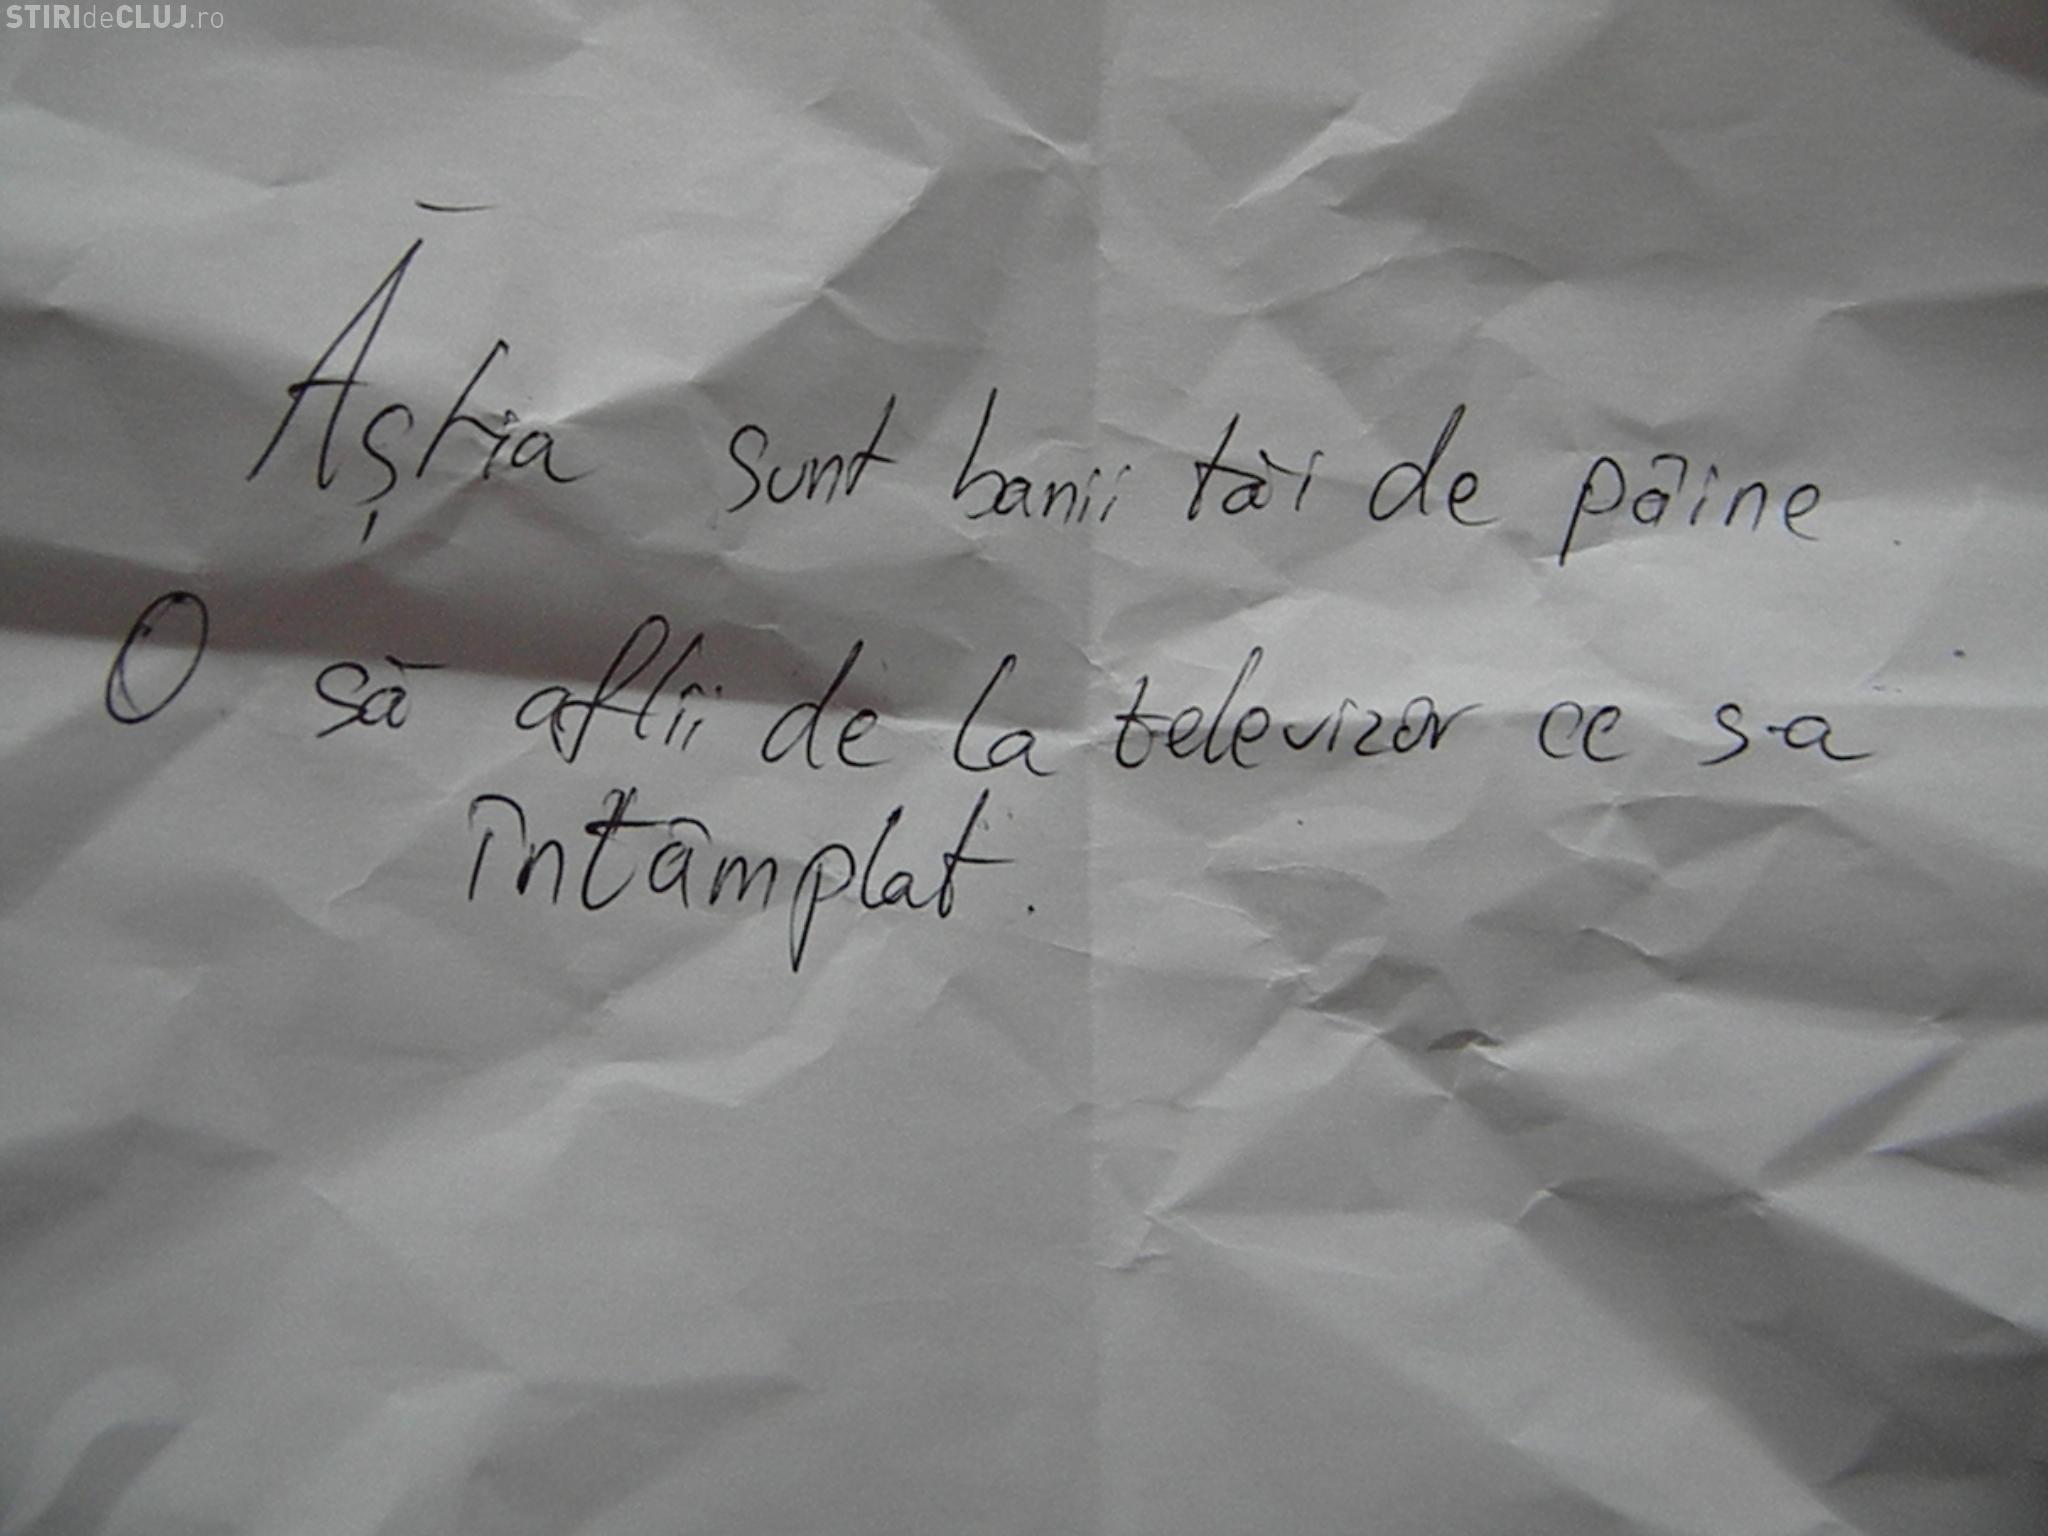 STIRIdeCLUJ.ro
Ăștia sunt banii tăi de pâine.
O să aflii de la televizor ce s-a
întâmplat.